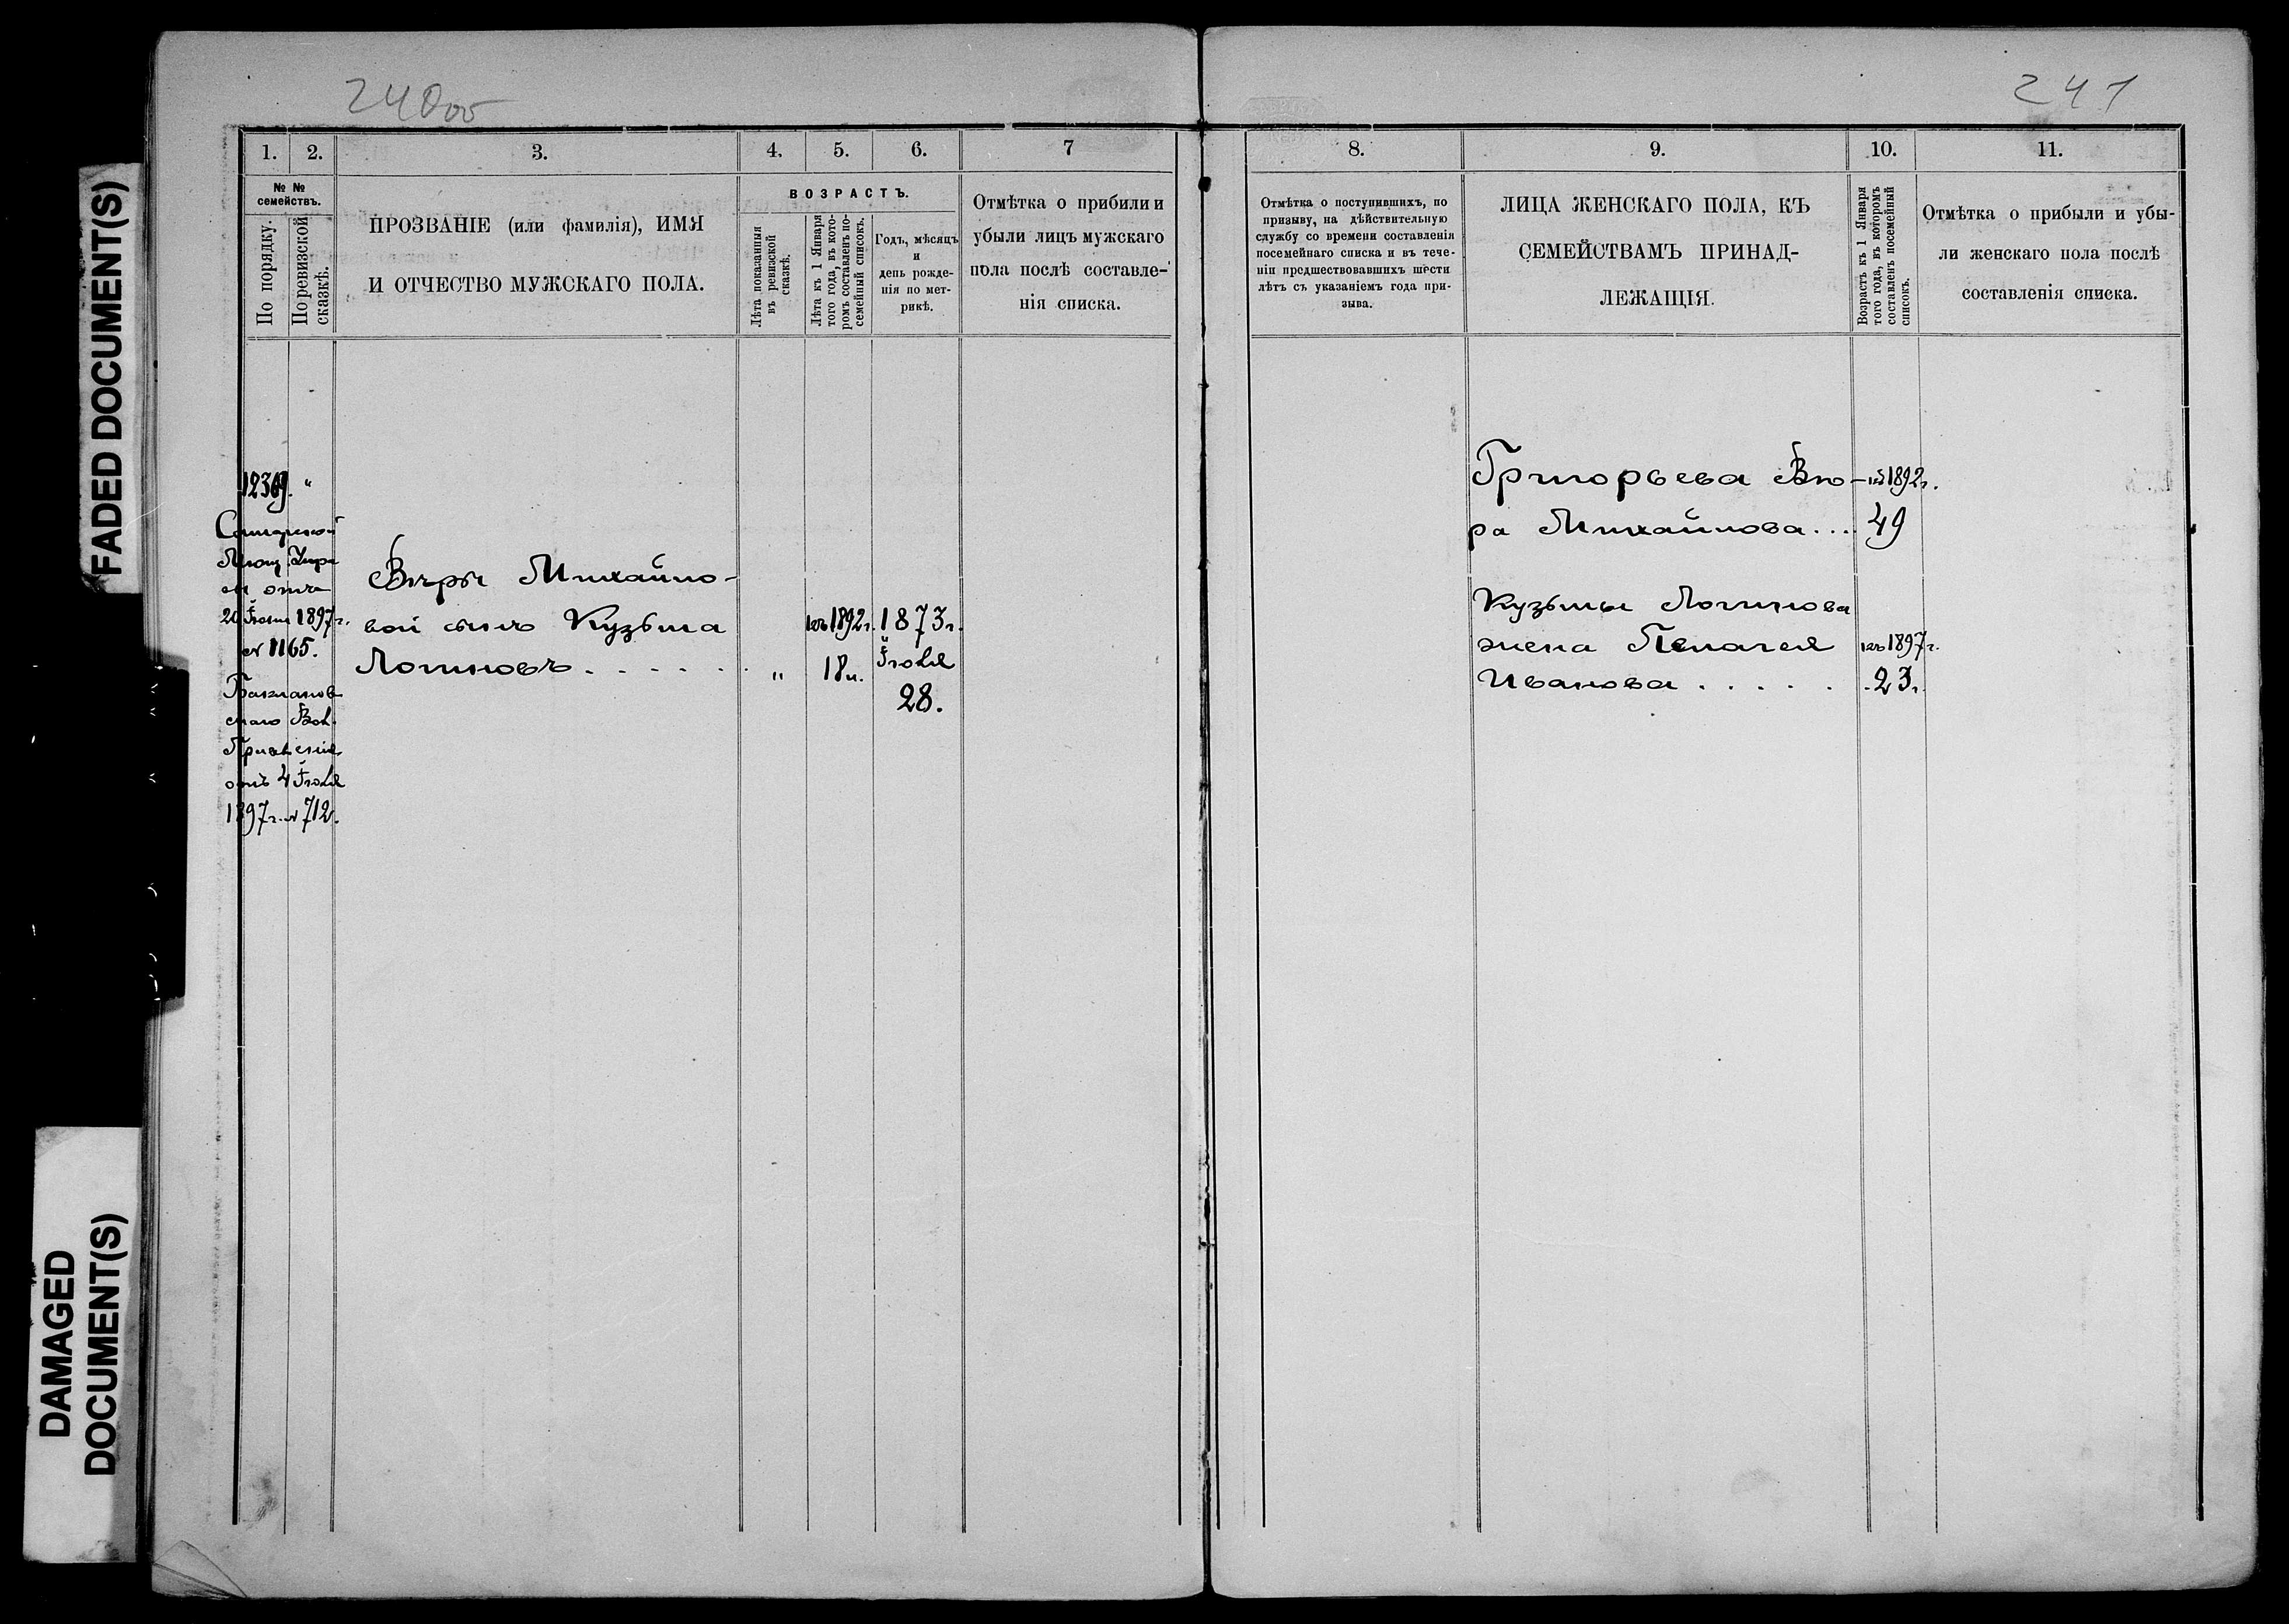 FADED DOCUMENT(S)
DAMAGED
DOCUMENT(S)
240об
1.
2.
3.
4.
5.
6.
7
№ №
семействъ.
По порядку.
По ревизской
сказкѣ.
ПРОЗВАНІЕ (или фамилія), ИМЯ
И ОТЧЕСТВО МУЖСКАГО ПОЛА.
ВОЗРАСТЪ.
Лѣта показанія
въ ревизской
сказкѣ.
Лѣта къ 1 Января
того года, въ кото-
ромъ составленъ по-
семейный списокъ.
Годъ, мѣсяцъ
и
день рожде-
нія по мет-
рикѣ.
Отмѣтка о прибили и
убыли лицъ мужскаго
пола послѣ составле-
нія списка.
12369. "
Самарской
Мѣщ. Упра
отъ
20 Іюня 1897 г.
№ 1165.
скаго Вол.
Правленія
отъ 4 Іюля
1897 г. № 712.
Вѣры Михайло-
вой сынъ Кузьма
Логиновъ . . . . . .
"
къ 1892 г.
18 л.
1873 г.
Іюля
28.
241
8.
9.
10.
11.
Отмѣтка о поступившихъ, по
призыву, на дѣйствительную
службу со времени составленія
посемейнаго списка и въ тече-
ніи предшествовавшихъ шести
лѣтъ съ указаніемъ года при-
зыва.
ЛИЦА ЖЕНСКАГО ПОЛА, КЪ
СЕМЕЙСТВАМЪ ПРИНАД-
ЛЕЖАЩІЯ.
Возрастъ къ 1 Января
того года, въ которомъ
составленъ посемейный
списокъ.
Отмѣтка о прибыли и убы-
ли женскаго пола послѣ
составленія списка.
Григорьева Вѣ-
ра Михайлова . . . .
къ 1892 г.
49
Кузьмы Логинова
жена Пелагея
Иванова . . . . .
къ 1897 г.
23 г.